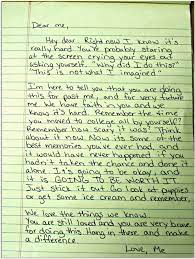 Dear me,
Hey dear. Right now I know it's
really hard. You're probably staring
at the screen crying your eyes out
asking yourself, "Why did I do this?
"This is not what I imagined"
I'm here to tell you that you are doing
this for me, and for very future
me. We have faith in you and we
know it's hard. Remember the time
you moved to college all by yourself?
Remember how scary it was? Think
about it now. Its some of the
best memories you've ever had, and
it would have never happened if you
hadn't taken the chance and done it
alone. It's going to be okay, and
it is GOING TO BE WORTH IT
Just stick it out. Go look at puppies
or get some ice cream and remember,
We love the things we know
You are still loved and you are very brave
for doing this. Hang in there and make
a difference.
Love, Me